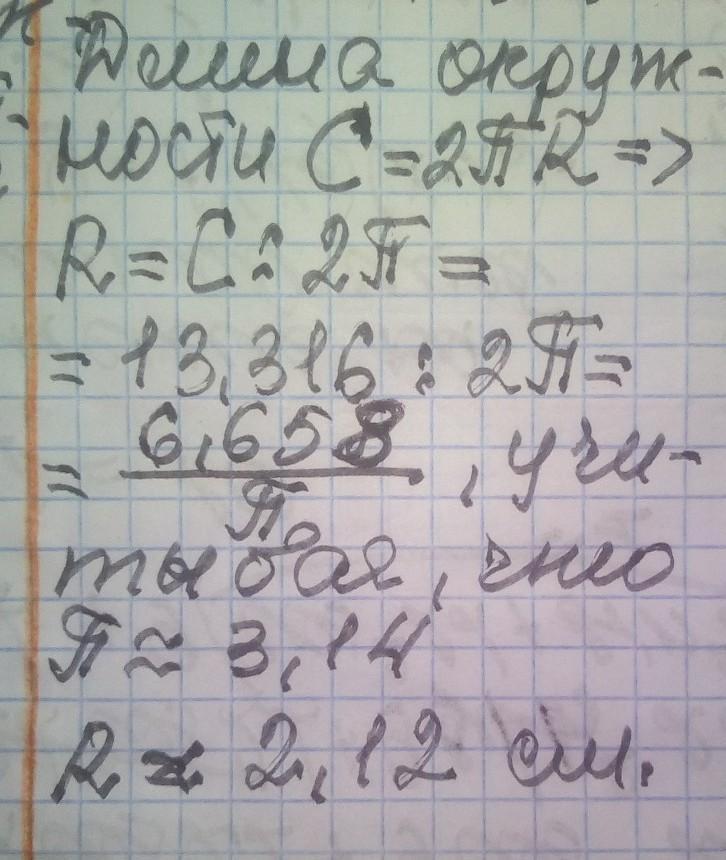 Длина окруж-
ности C = 2πR =>
R = C : 2π =
= 13,316 : 2π =
= 6,658/π, учи-
тывая, что
π ≈ 3,14
R ≈ 2,12 см.